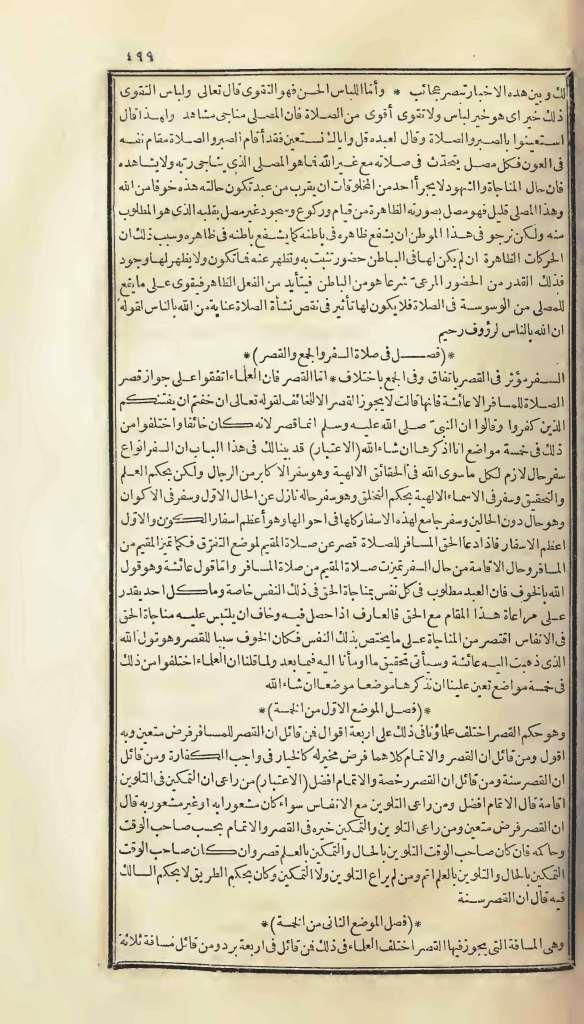 ٤٩٩
لك وبين هذه الاخبار تبصر عجائب * وأما اللباس الحسن فهو التقوى قال تعالى ولباس التقوى
ذلك خير اى هو خير لباس ولا تقوى أقوى من الصلاة فان المصلى مناجى مشاهد ولهذا قال
استعينوا بالصبر والصلاة وقال لعبده قل واياك نستعين فقد أقام الصبر والصلاة مقام نفسه
فى العون فكل مصل يتحدّث فى صلاته مع غير الله فما هو المصلى الذى يناجى ربه ولا يشاهده
فان حال المناجاة والشهود لا يجرأ احد من المخلوقات ان يقرب من عبد تكون حالته هذه خوفا من الله
وهذا المصلى قليل فهو مصل بصورته الظاهرة من قيام وركوع وسجود غير مصل بقلبه الذى هو المطلوب
منه ولكن نرجو فى هذا الموطن ان يشفع ظاهره فى باطنه كما يشفع باطنه فى ظاهره وسبب ذلك ان
الحركات الظاهرة ان لم يكن لها فى الباطن حضور تثبت به وتظهر عنه فما تكون ولا يظهر لها وجود
فذلك القدر من الحضور المرعىّ شرعا هو من الباطن فيتأيد من الفعل الظاهر فيقوى على ما يقع
للمصلى من الوسوسة فى الصلاة فلا يكون لها تأثير فى نقص نشأة الصلاة عناية من الله بالناس لقوله
ان الله بالناس لرؤوف رحيم
*(فصـــل فى صلاة السفر والجمع والقصر)*
السفر مؤثر فى القصر باتفاق وفى الجمع باختلاف * امّا القصر فان العلماء اتفقوا على جواز قصر
الصلاة للمسافر الا عائشة فانها قالت لا يجوز القصر الا للخائف لقوله تعالى ان خفتم ان يفتنكم
الذين كفروا وقالوا ان النبىّ صلى الله عليه وسلم انما قصر لانه كان خائفا واختلفوا من
ذلك فى خمسة مواضع انا اذكرها ان شاء الله (الاعتبار) قد بينا لك فى هذا الباب ان السفر انواع
سفر حال لازم لكل ما سوى الله فى الحقائق الالهية وهو سفر الاكابر من الرجال ولكن بحكم العلم
والتحقيق وسفر فى الاسماء الالهية بحكم التخلق وهو سفر حاله نازل عن الحال الاوّل وسفر فى الاكوان
وهو حال دون الحالين وسفر جامع لهذه الاسفار كلها فى احوالها وهو أعظم اسفار الكون والاوّل
اعظم الاسفار فاذا دعا الحق المسافر للصلاة قصر عن صلاة المقيم لموضع التفرّق فكما تميز المقيم من
المسافر وحال الاقامة من حال السفر تميزت صلاة المقيم من صلاة المسافر وامّا قول عائشة وهو قول
الله بالخوف فان العبد مطلوب فى كل نفس بمناجاة الحق فى ذلك النفس خاصة وما كل احد يقدر
على مراعاة هذا المقام مع الحق فالعارف اذا حصل فيه وخاف ان يلتبس عليه مناجاة الحق
فى الانفاس اقتصر من المناجاة على ما يختص بذلك النفس فكان الخوف سببا للقصر وهو قول الله
الذى ذهبت اليه عائشة وسيأتى تحقيق ما اومأنا اليه فيما بعد ولما قلنا ان العلماء اختلفوا من ذلك
فى خمسة مواضع تعين علينا ان نذكرها موضعا موضعا ان شاء الله
*(فصل الموضع الاوّل من الخمسة)*
وهو حكم القصر اختلف علماؤنا فى ذلك على اربعة اقوال فمن قائل ان القصر للمسافر فرض متعين وبه
اقول ومن قائل ان القصر والاتمام كلاهما فرض مخير له كالخيار فى واجب الكفارة ومن قائل
ان القصر سنة ومن قائل ان القصر رخصة والاتمام افضل (الاعتبار) من راعى ان التمكين فى التلوين
اقامة قال الاتمام افضل ومن راعى التلوين مع الانفاس سواء كان مشعورا به او غير مشعور به قال
ان القصر فرض متعين ومن راعى التلوين والتمكين خيره فى القصر والاتمام بحسب صاحب الوقت
وحاكمه فان كان صاحب الوقت التلوين بالحال والتمكين بالعلم قصر وان كان صاحب الوقت
التمكين بالحال والتلوين بالعلم اتم ومن لم يراع التلوين ولا التمكين وكان بحكم الطريق لا بحكم السالك
فيه قال ان القصر سنة
*(فصل الموضع الثانى من الخمسة)*
وهى المسافة التى يجوز فيها القصر اختلف العلماء فى ذلك فمن قائل فى اربعة برد ومن قائل مسافة ثلاثة